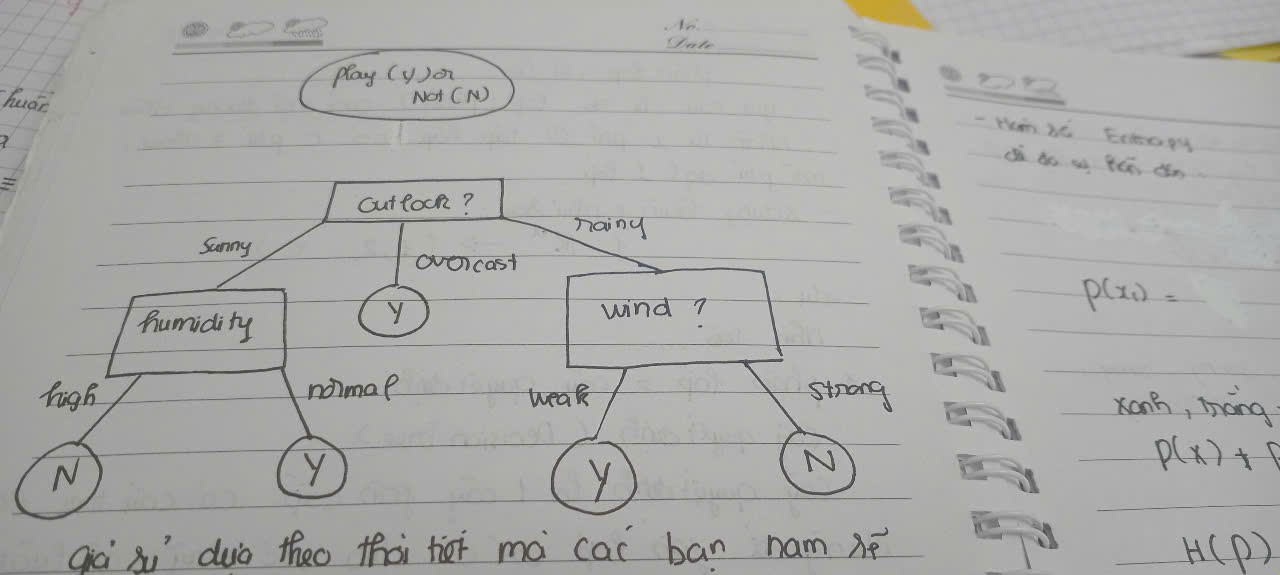 No.
Date
play (Y) or
Not (N)
outlook ?
sunny
overcast
rainy
Y
humidity
wind ?
high
normal
weak
strong
N
Y
Y
N
giả sử dựa theo thời tiết mà các bạn nam sẽ
Entropy
P(x₁) =
xanh, trắng
P(x) +
H(p)